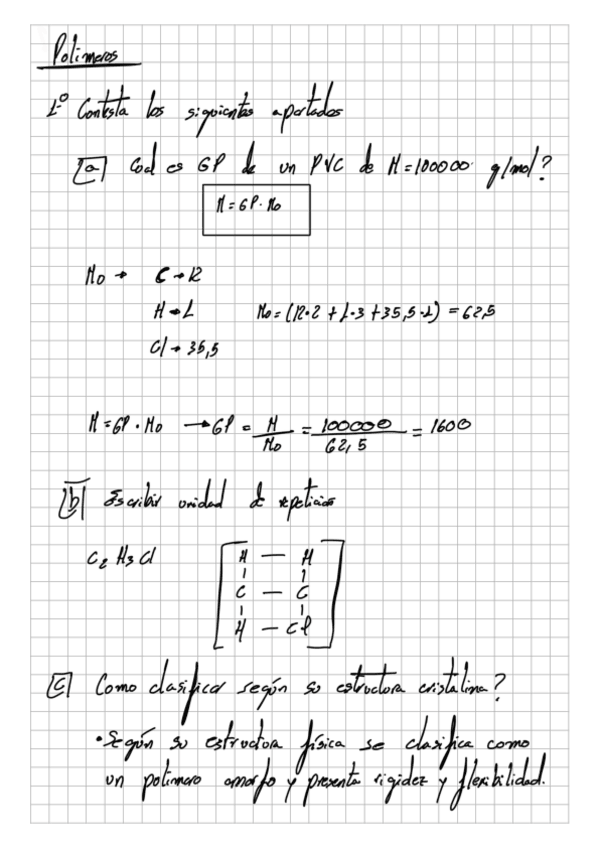 Polimeros
1º Contesta los siguientes apartados
a) Cual es GP de un PVC de M=100000 g/mol?
M = GP · Mo
Mo → C → 12
H → 1 Mo = (12·2 + 1·3 + 35,5·1) = 62,5
Cl → 35,5
M = GP · Mo → GP = M/Mo = 100000/62,5 = 1600
b) Escribir unidad de repeticion
C2 H3 Cl
H — H
C — C
H — Cl
c) Como clasificar según su estructura cristalina?
• Según su estructura física se clasifica como
un polimero amorfo y presenta rigidez y flexibilidad.